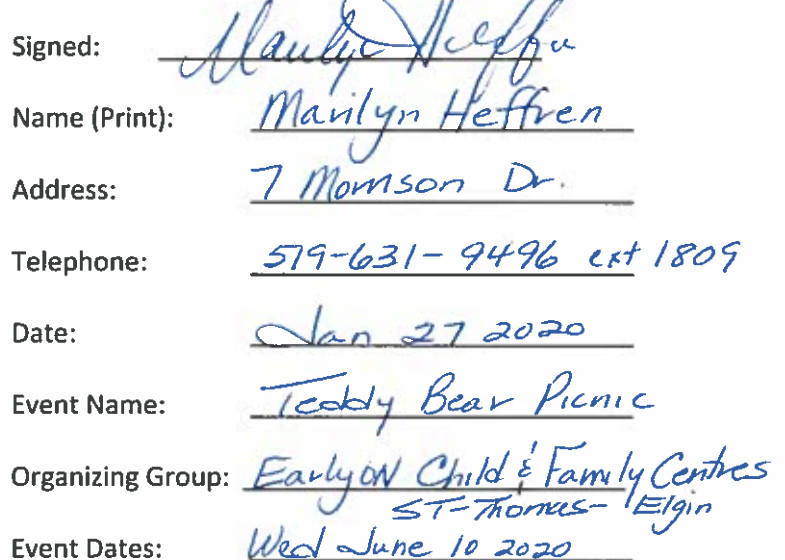 Signed: Marilyn Heffren
Name (Print): Marilyn Heffren
Address: 7 Morrison Dr.
Telephone: 519-631-9496 ext 1809
Date: Jan 27 2020
Event Name: Teddy Bear Picnic
Organizing Group: EarlyON Child & Family Centres
ST-Thomas- Elgin
Event Dates: Wed June 10 2020